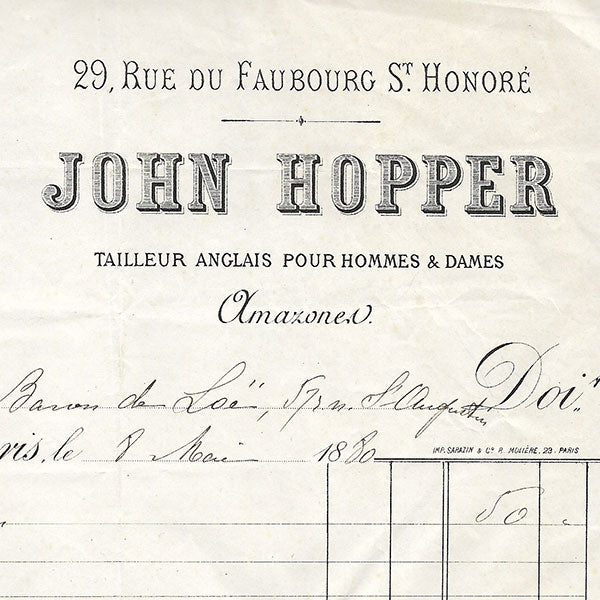 29, RUE DU FAUBOURG ST. HONORÉ
JOHN HOPPER
TAILLEUR ANGLAIS POUR HOMMES & DAMES
Amazones.
Baron de Loë, 57 r. St Augustin Doit
ris, le 8 Mai 1880
IMP. SARAZIN & Cie R. MOLIÈRE, 23 - PARIS
50 "